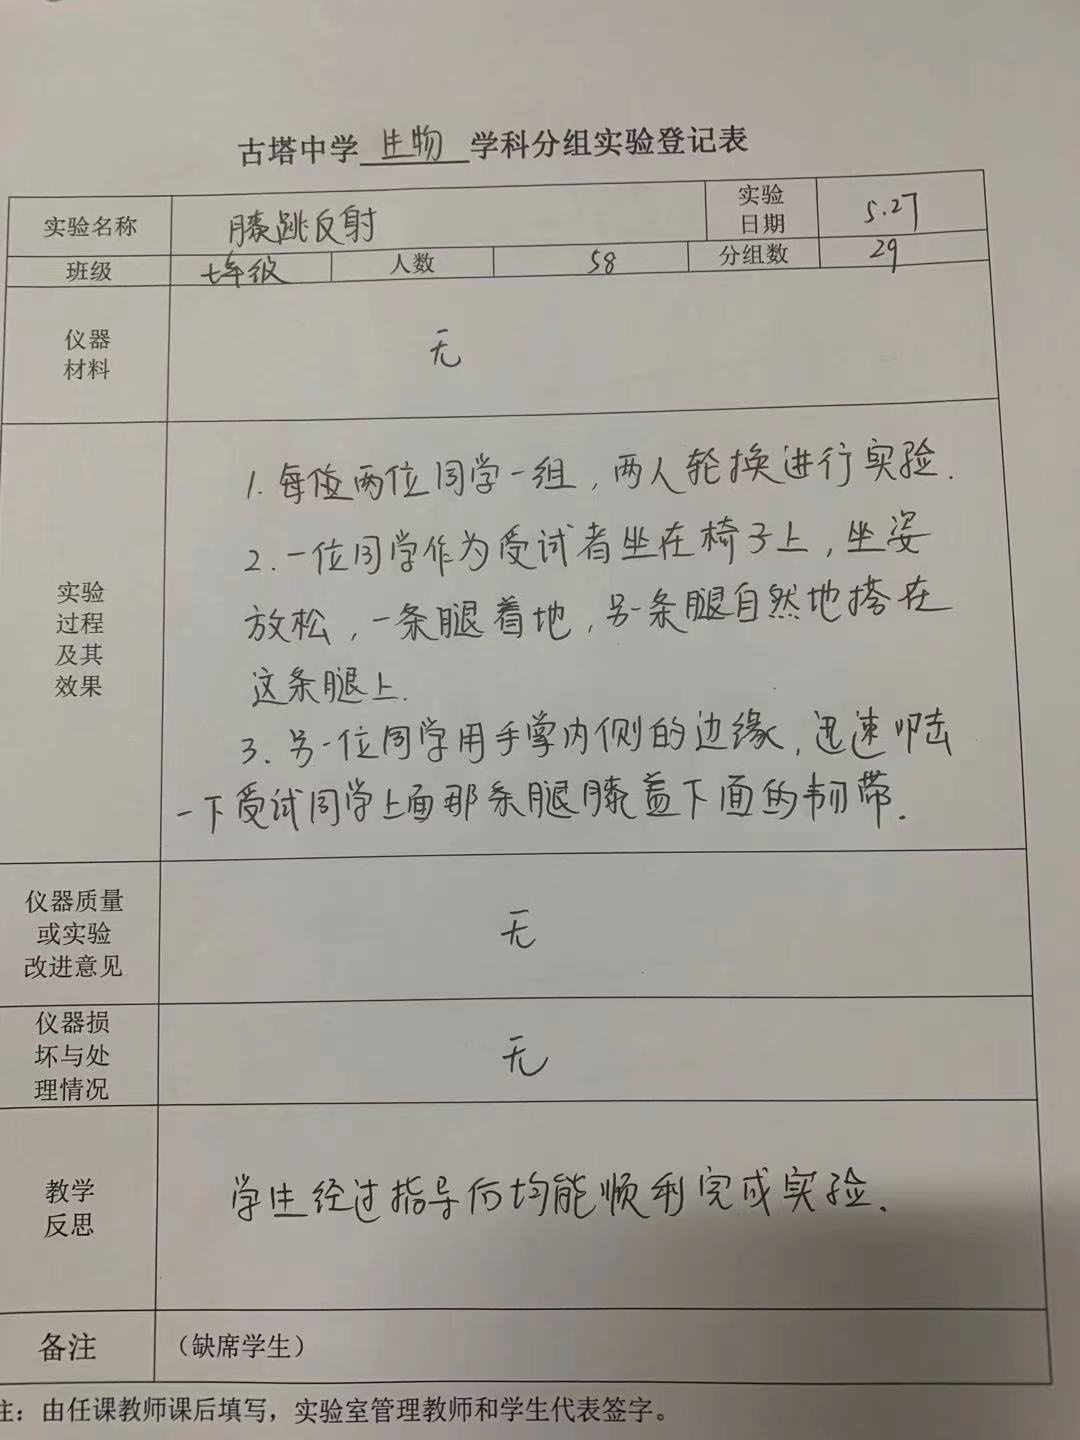 古塔中学 生物 学科分组实验登记表
实验名称 膝跳反射 实验日期 5.27
班级 七年级 人数 58 分组数 29
仪器
材料
无
实验
过程
及其
效果
1. 每位两位同学一组，两人轮换进行实验.
2. 一位同学作为受试者坐在椅子上，坐姿
放松，一条腿着地，另一条腿自然地搭在
这条腿上.
3. 另一位同学用手掌内侧的边缘，迅速叩击
一下受试同学上面那条腿膝盖下面的韧带.
仪器质量
或实验
改进意见
无
仪器损
坏与处
理情况
无
教学
反思
学生经过指导后均能顺利完成实验.
备注 （缺席学生）
注：由任课教师课后填写，实验室管理教师和学生代表签字。